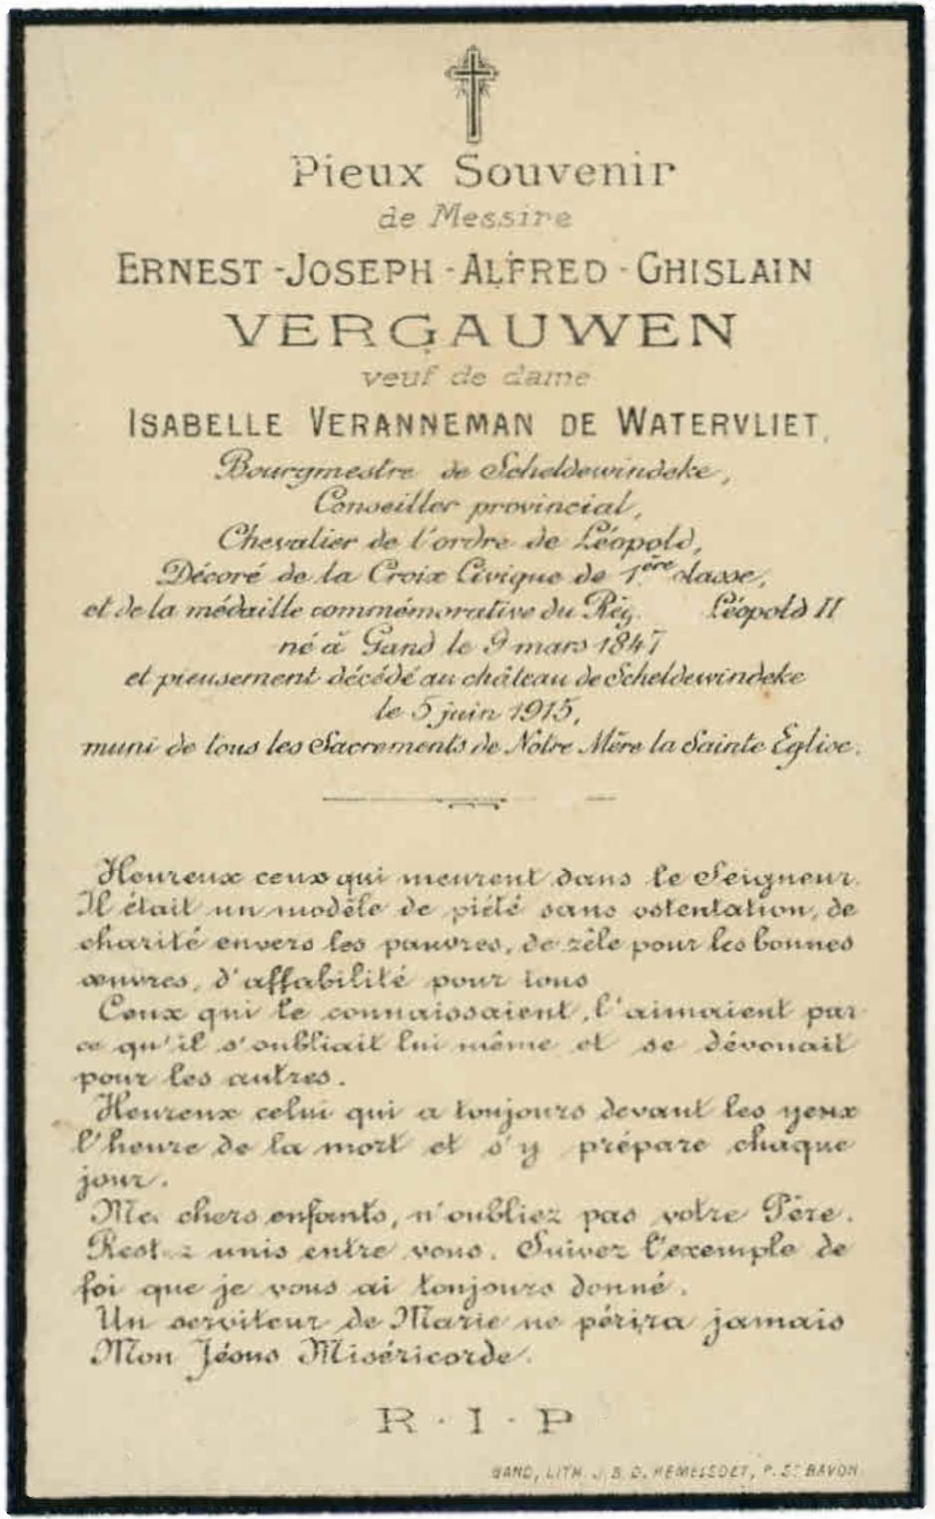 Pieux Souvenir
de Messire
ERNEST-JOSEPH-ALFRED-GHISLAIN
VERGAUWEN
veuf de dame
ISABELLE VERANNEMAN DE WATERVLIET,
Bourgmestre de Scheldewindeke,
Conseiller provincial,
Chevalier de l'ordre de Léopold,
Décoré de la Croix Civique de 1ère classe,
et de la médaille commémorative du Règ. Léopold II
né à Gand le 9 mars 1847
et pieusement décédé au château de Scheldewindeke
le 5 juin 1915,
muni de tous les Sacrements de Notre Mère la Sainte Eglise.
Heureux ceux qui meurent dans le Seigneur.
Il était un modèle de piété sans ostentation, de
charité envers les pauvres, de zèle pour les bonnes
œuvres, d'affabilité pour tous
Ceux qui le connaissaient, l'aimaient par
ce qu'il s'oubliait lui même et se dévouait
pour les autres.
Heureux celui qui a toujours devant les yeux
l'heure de la mort et s'y prépare chaque
jour.
Mes chers enfants, n'oubliez pas votre Père.
Restez unis entre vous. Suivez l'exemple de
foi que je vous ai toujours donné.
Un serviteur de Marie ne périra jamais
Mon Jésus Miséricorde.
R·I·P
GAND, LITH. J. B. D. HEMELSOET, P. St BAVON